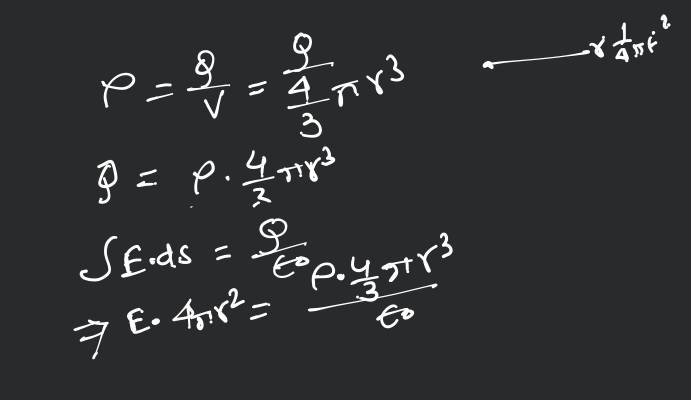 ρ = Q/V = Q/(4/3 π r³)
Q = ρ · 4/3 π r³
∫E·ds = Q/ε₀
⇒ E · 4πr² = ρ · 4/3 π r³ / ε₀